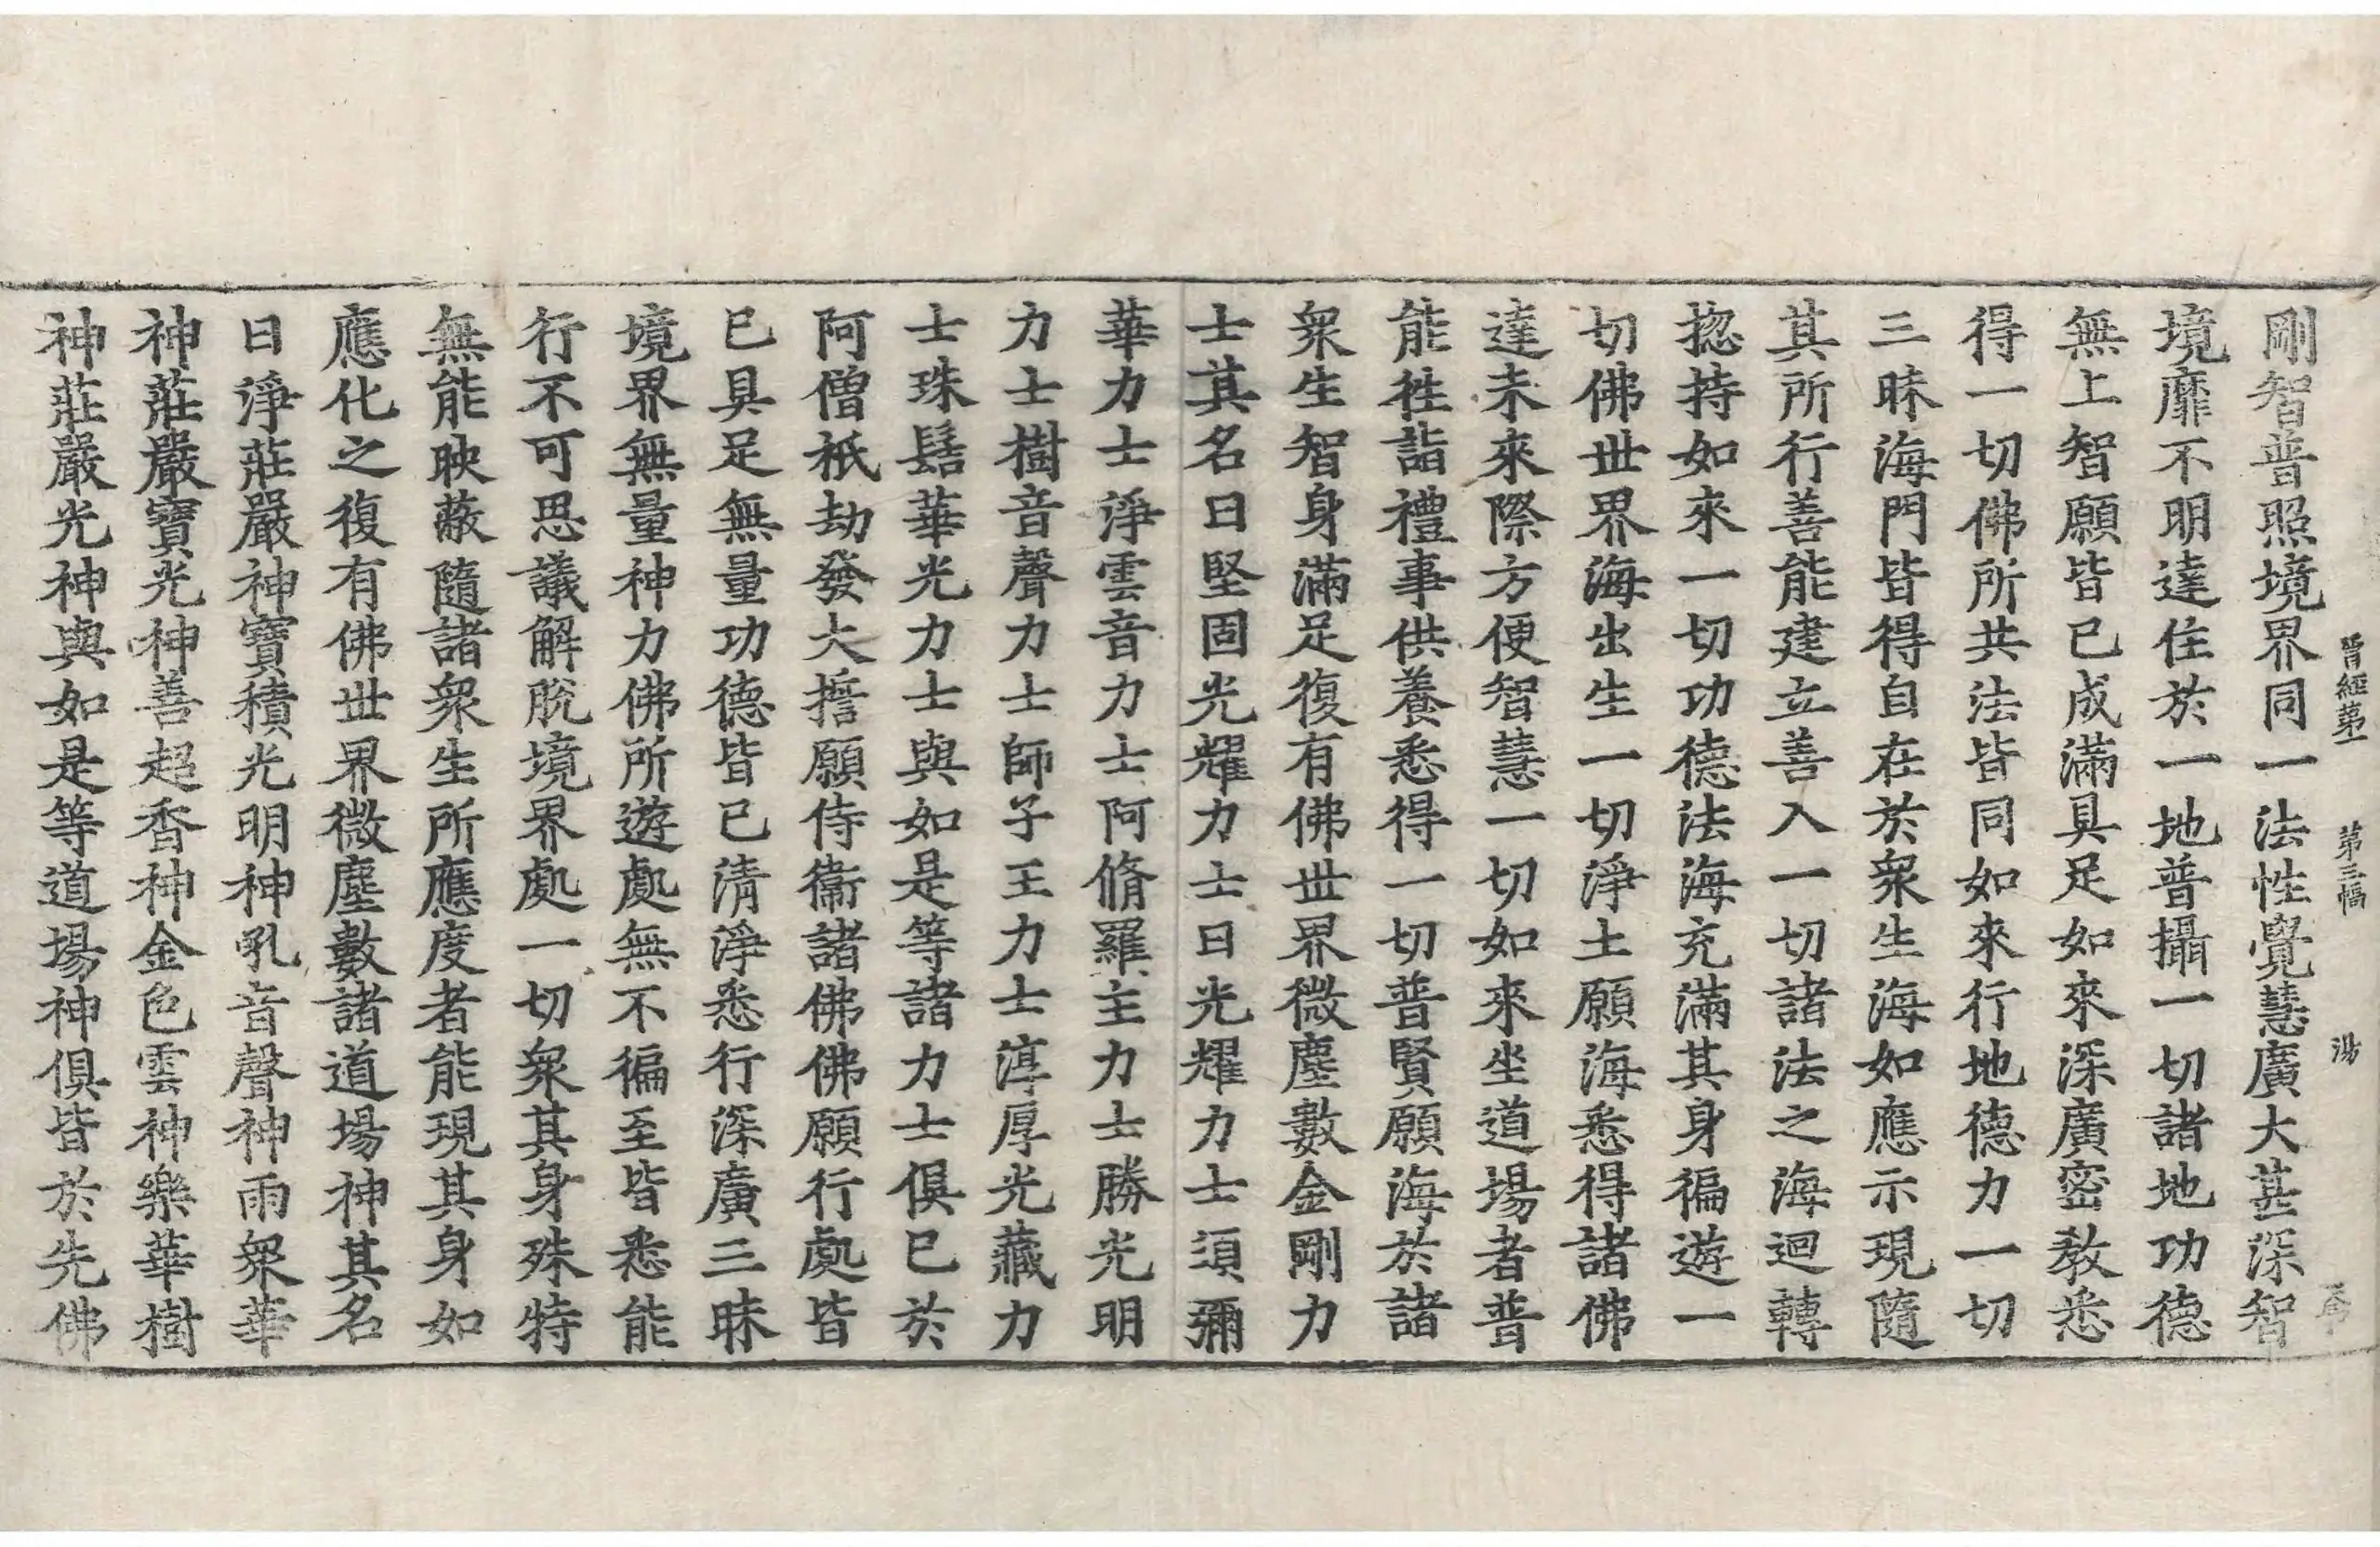 晉經第一 第三幅 湯
剛智普照境界同一法性覺慧廣大甚深智
境靡不明達住於一地普攝一切諸地功德
無上智願皆已成滿具足如來深廣密教悉
得一切佛所共法皆同如來行地德力一切
三昧海門皆得自在於衆生海如應示現隨
其所行善能建立善入一切諸法之海迴轉
揔持如來一切功德法海充滿其身徧遊一
切佛世界海出生一切淨土願海悉得諸佛
達未來際方便智慧一切如來坐道場者普
能徃詣禮事供養悉得一切普賢願海於諸
衆生智身滿足復有佛世界微塵數金剛力
士其名曰堅固光耀力士日光耀力士須彌
華力士淨雲音力士阿脩羅主力士勝光明
力士樹音聲力士師子王力士淳厚光藏力
士珠髻華光力士與如是等諸力士俱已於
阿僧祇劫發大誓願侍衞諸佛佛願行處皆
已具足無量功德皆已清淨悉行深廣三昧
境界無量神力佛所遊處無不徧至皆悉能
行不可思議解脫境界處一切衆其身殊特
無能映蔽隨諸衆生所應度者能現其身如
應化之復有佛世界微塵數諸道場神其名
曰淨莊嚴神寶積光明神吼音聲神雨衆華
神莊嚴寶光神善超香神金色雲神樂華樹
神莊嚴光神與如是等道場神俱皆於先佛